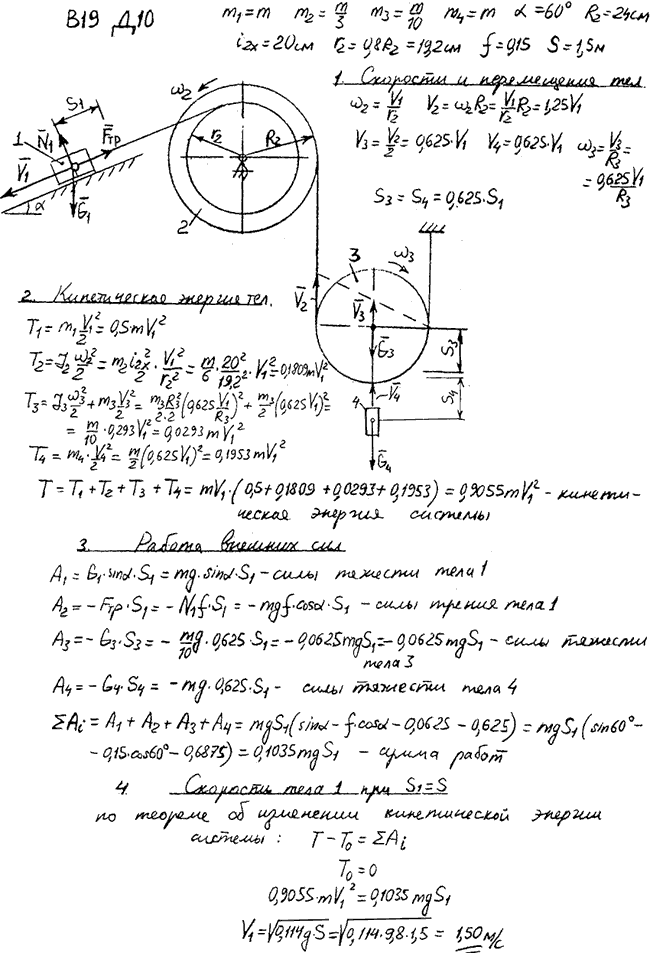 В19 Д10
m₁=m m₂=m/3 m₃=m/10 m₄=m α=60° R₂=24см
i₂ₓ=20см r₂=0,8R₂=19,2см f=0,15 S=1,5м
1. Скорости и перемещения тел
ω₂=V₁/r₂ V₂=ω₂R₂=V₁/r₂ R₂=1,25V₁
V₃=V₂/2=0,625·V₁ V₄=0,625·V₁ ω₃=V₃/R₃=
=0,625V₁/R₃
S₃=S₄=0,625·S₁
S₁
N̄₁
F̄тр
1
V̄₁
Ḡ₁
α
ω₂
r₂
R₂
2
3
ω₃
V̄₂
V̄₃
Ḡ₃
S₃
V̄₄
4
S₄
Ḡ₄
2. Кинетическая энергие тел.
T₁=m₁V₁²/2=0,5mV₁²
T₂=J₂ω₂²/2=m₂i₂ₓ²/2·V₁²/r₂²=m/6·20²/19,2²·V₁²=0,1809mV₁²
T₃=J₃ω₃²/2+m₃V₃²/2=m₃R₃²/2·2(0,625V₁/R₃)²+m₃/2(0,625V₁)²=
=m/10·0,293V₁²=0,0293mV₁²
T₄=m₄·V₄²/2=m/2(0,625V₁)²=0,1953mV₁²
T=T₁+T₂+T₃+T₄=mV₁·(0,5+0,1809+0,0293+0,1953)=0,9055mV₁² - кинети-
ческая энергия системы
3. Работа внешних сил
A₁=G₁·sinα·S₁=mg·sinα·S₁ - силы тяжести тела 1
A₂=-Fтр·S₁=-N₁f·S₁=-mgf·cosα·S₁ - силы трения тела 1
A₃=-G₃·S₃=-m/10g·0,625·S₁=-0,0625mgS₁=-0,0625mgS₁ - силы тяжести
тела 3
A₄=-G₄·S₄=-mg·0,625·S₁ - силы тяжести тела 4
ΣAᵢ=A₁+A₂+A₃+A₄=mgS₁(sinα-f·cosα-0,0625-0,625)=mgS₁(sin60°-
-0,15·cos60°-0,6875)=0,1035mgS₁ - сумма работ
4. Скорость тела 1 при S₁=S
по теореме об изменении кинетической энергии
системы: T-T₀=ΣAᵢ
T₀=0
0,9055·mV₁²=0,1035mgS₁
V₁=√0,114g·S=√0,114·9,8·1,5=1,50м/с